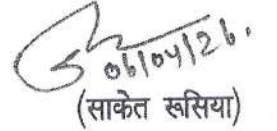 06/04/26.
(साकेत रूसिया)